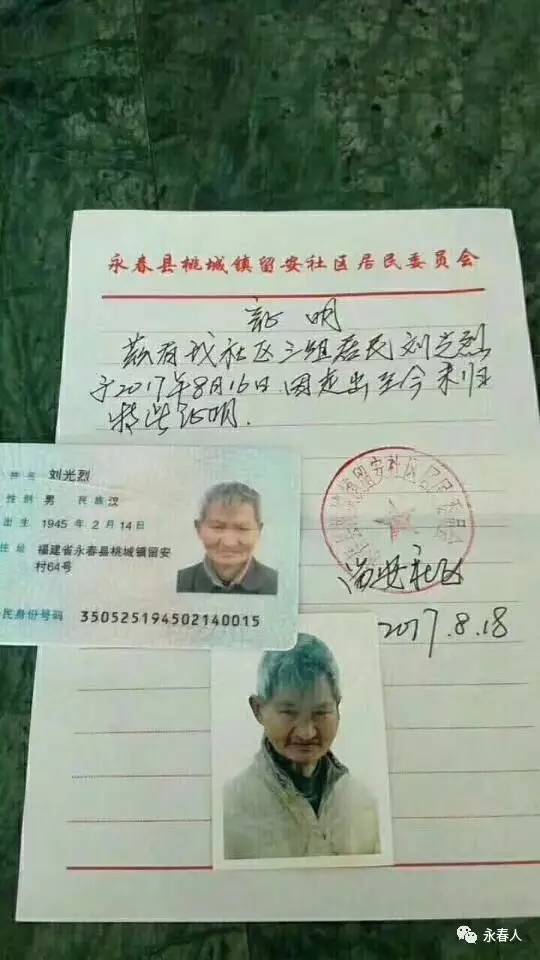 永春县桃城镇留安社区居民委员会
证明
兹有我社区三组居民刘光烈
于2017年8月16日因走出至今未归
特此证明.
留安社区
2017.8.18
姓名 刘光烈
性别 男 民族 汉
出生 1945 年 2 月 14 日
住址 福建省永春县桃城镇留安
村64号
民身份号码 350525194502140015
永春人